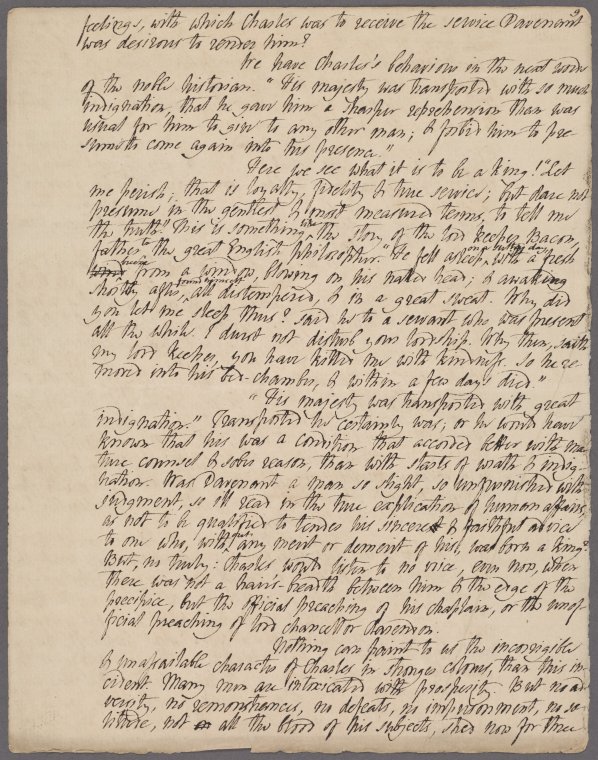 feelings, with which Charles was to receive the service Davenant
was desirous to render him?
We have Charles's behaviour in the next words
of the noble historian. "His majesty was transported with so much
indignation, that he gave him a sharper reprehension than was
usual for him to give to any other man; & forbid him to pre
sume to come again into his presence."
Here we see what it is to be a king! "Let
me perish; that is loyalty, fidelity & true service; but dare not
presume in the gentlest & most measured terms, to tell me
the truth." This is something like the story of the lord keeper Bacon,
father to the great English philosopher. "He fell asleep, on a sultry day, with a fresh
breeze from a window, blowing on his naked head; & awaking
shortly after, all distempered, & in a great sweat. Why did
you let me sleep thus? said he to a servant who was present
all the while. I durst not disturb your lordship. Why then, saith
my lord keeper, you have killed me with kindness. So he re
moved into his bed-chamber, & within a few days died."
"His majesty was transported with great
indignation." Transported he certainly was; or he would have
known that his was a condition that accorded better with ma
ture counsel & sober reason, than with starts of wrath & indig
nation. Was Davenant a man so slight, so unfurnished with
judgment, so ill read in the true explication of human affairs,
as not to be qualified to tender his sincere & faithful advice
to one who, without any merit or demerit of his, was born a king?
But, no truly: Charles would listen to no voice, even now, when
there was not a hair's-breadth between him & the edge of the
precipice, but the official preaching of his chaplain, or the unof
ficial preaching of lord chancellor Clarendon.
Nothing can paint to us the incorrigible
& unassailable character of Charles in stronger colours, than this in
cident. Many men are intoxicated with prosperity. But no ad
versity, no remonstrances, no defeats, no imprisonment, no so
litude, not all the blood of his subjects, shed now for three